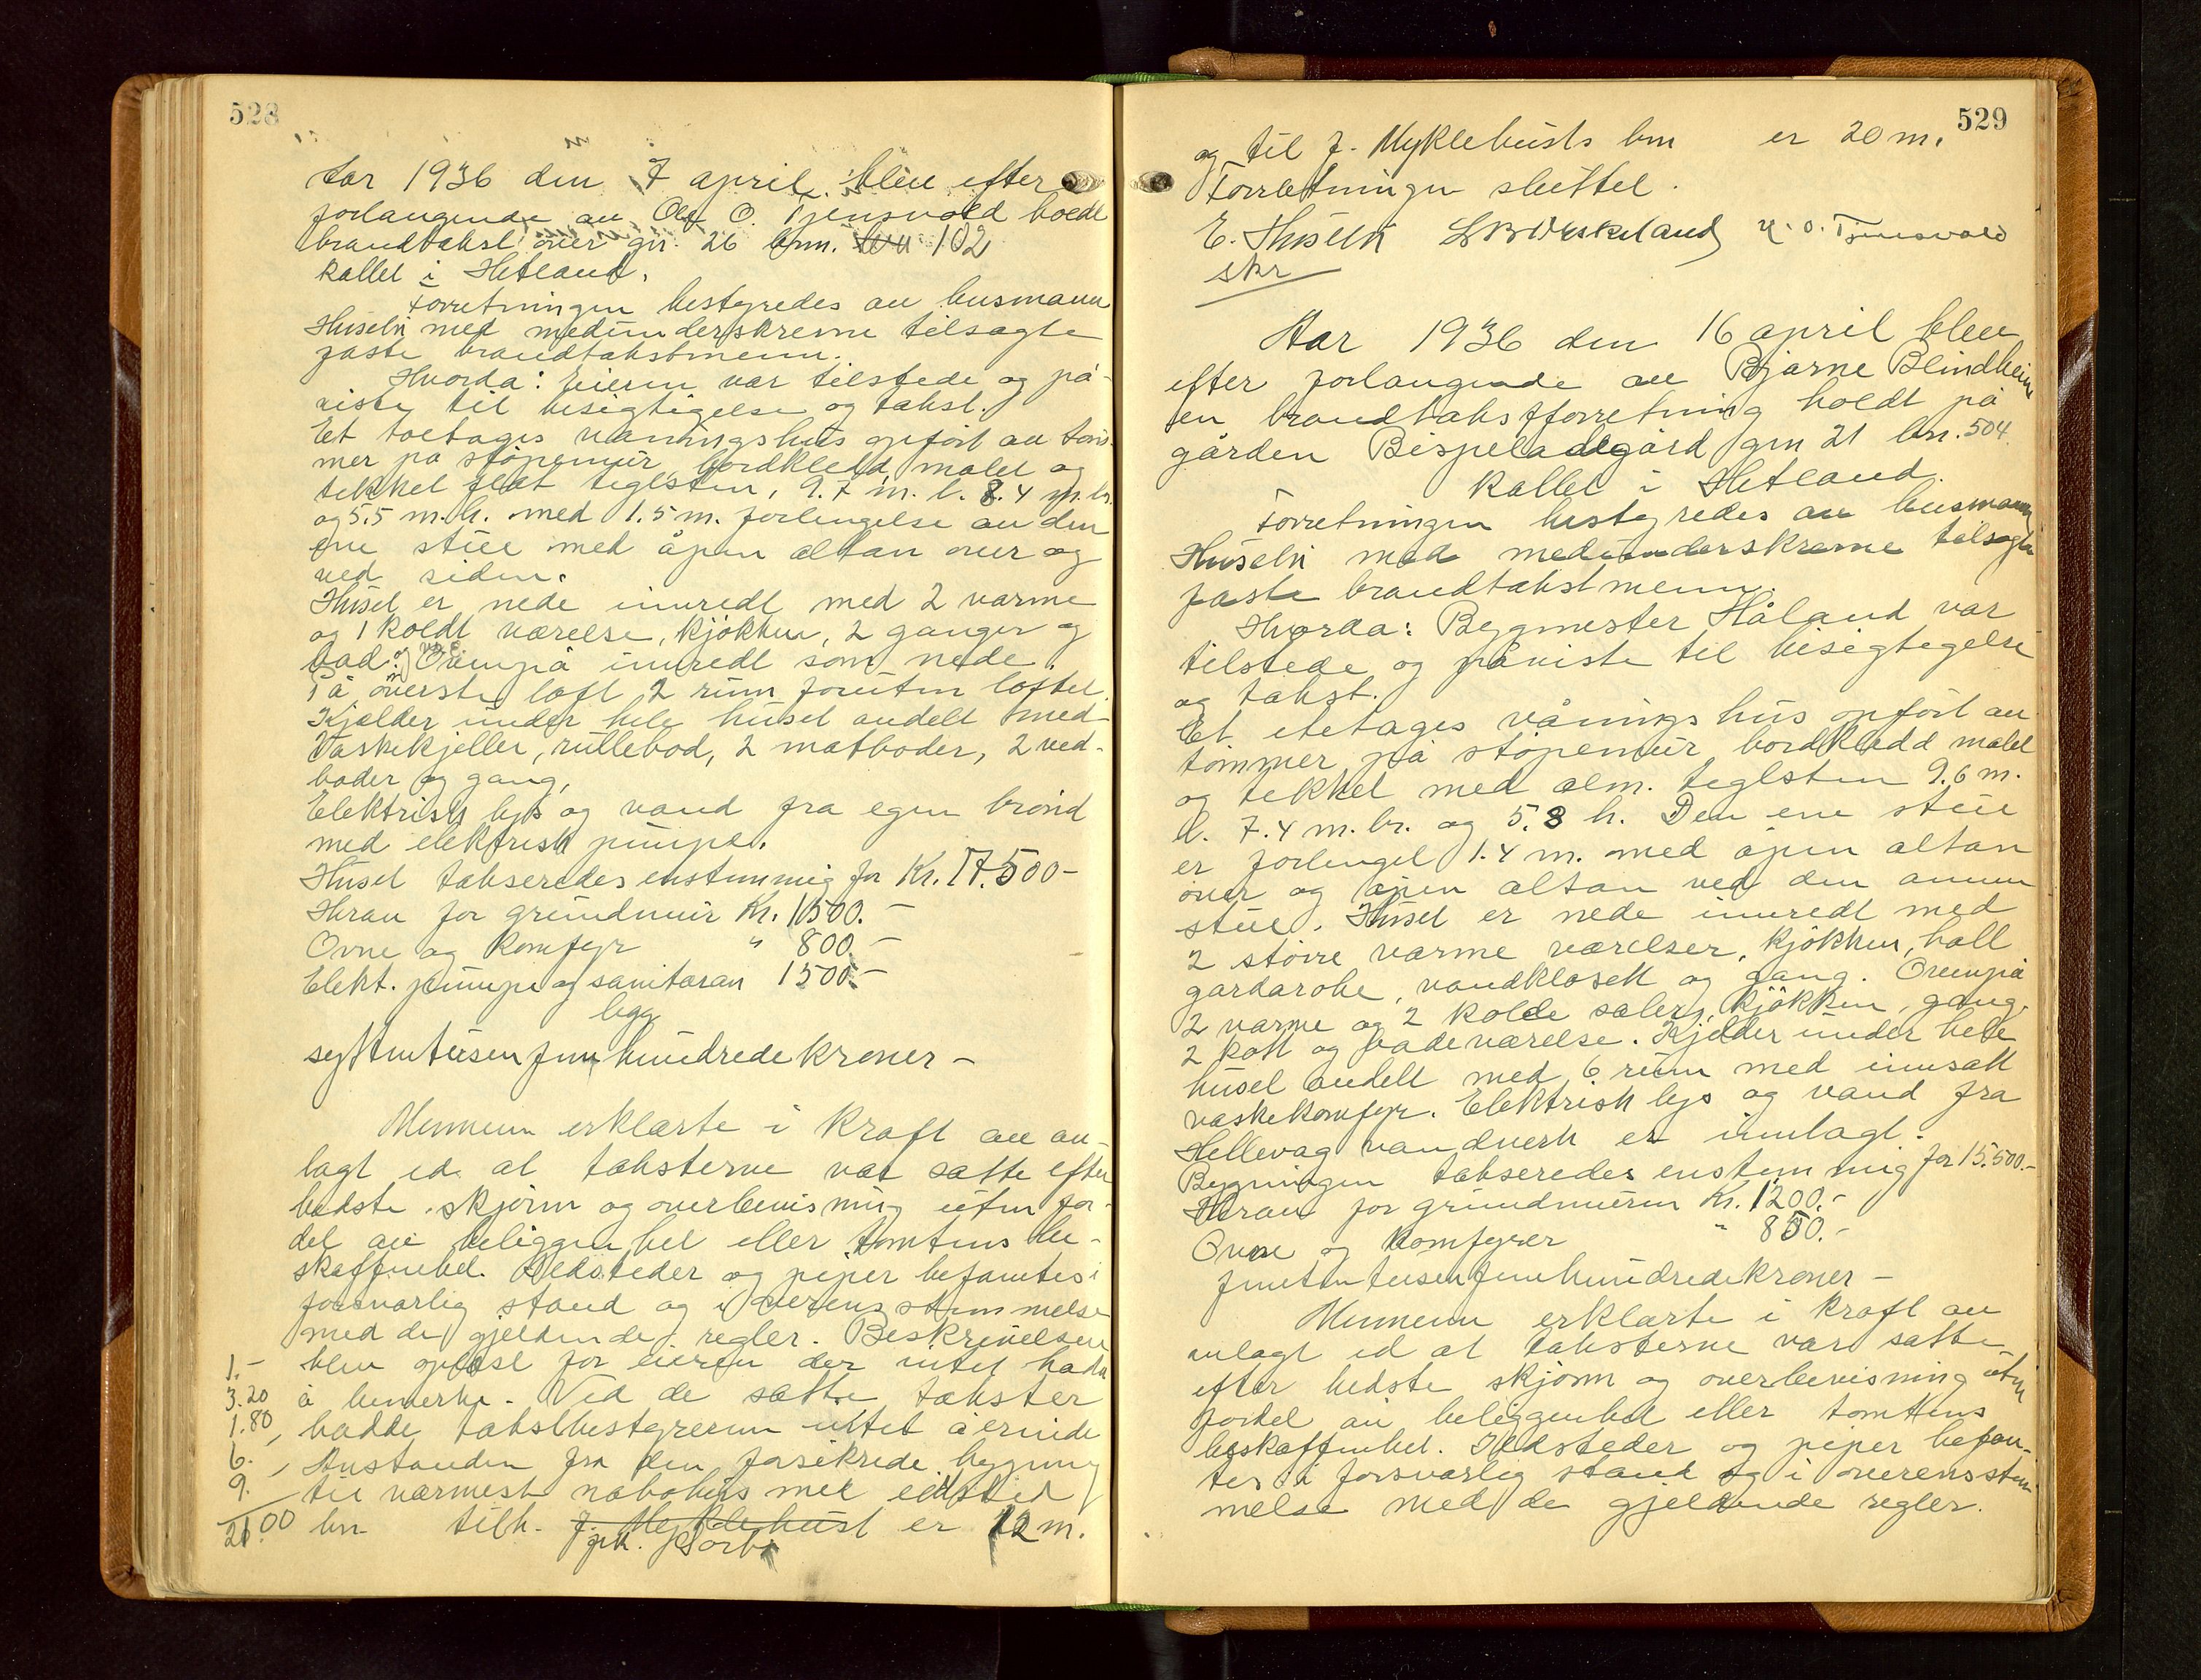 528
Aar 1936 den 7 april blev efter
forlangende av Olaf O. Tjensvold holdt
brandtakst over gn. 26 bnm. 102
kallet i Hetland.
Forretningen bestyredes av busmann
Husebø med medunderskrevne tilsagte
faste brandtakstmenn.
Hvorda: Eieren var tilstede og på-
viste til besigtigelse og takst.
Et toetages våningshus opført av tøm-
mer på støpemur, bordkledd, malet og
tekket flat teglsten, 9.7 m. l. 8.4 m. br.
og 5.5 m. h. med 1.5 m. forlengelse av den
ene stue med åpen altan over og
ved siden.
Huset er nede innredt med 2 varme
og 1 koldt værelse, kjøkken, 2 ganger og
bad og w.c. Ovenpå innredt som nede.
På øverste loft 2 rum foruten loftet.
Kjælder under hele huset avdelt med
Vaskekjeller, rullebod, 2 matboder, 2 ved-
boder og gang,
Elektrisk lys og vand fra egen brønd
med elektrisk pumpe.
Huset takseredes enstemmig for Kr. 17.500-
Herav for grundmur Kr. 1500.-
Ovne og komfyr " 800.-
Elekt. pumpe og sanitæran 1500.-
legg
syttentusenfemhundredekroner -
Mennene erklærte i kraft av av-
lagt ed at taksterne var satte efter
bedste skjønn og overbevisning uten for-
del av beliggenhet eller tomtens be-
skaffenhet. Ildsteder og piper befantes i
forsvarlig stand og i overensstemmelse
med de gjeldende regler. Beskrivelsen
1.- blev oplæst for eieren der intet hadde
3.20 å bemerke. Ved de satte takster
1.80 hadde takstbestyreren intet å erindre
6. Avstanden fra den forsikrede bygning
9. til nærmeste nabohus med ildsted
21.00 bn tilh. J. Myklehust er 12 m.
529
og til J. Myklebusts bn er 20 m.
Forretningen sluttet.
E. Husebø O. Tjensvold
skr
Aar 1936 den 16 april blev
efter forlangende av Bjarne Blindheim
en brandtakstforretning holdt på
gården Bispeladegård gnr 21 bn. 504.
kallet i Hetland.
Forretningen bestyredes av busmann
Husebø med medunderskrevne tilsagte
faste brandtakstmenn.
Hvorda: Bygmester Håland var
tilstede og påviste til besigtegelse
og takst.
Et etetages våningshus opført av
tømmer på støpemur, bordkledd malet
og tekket med alm. teglsten 9.6 m.
l. 7.4 m. br. og 5.8 h. Den ene stue
er forlenget 1.4 m. med åpen altan
over og åpen altan ved den annen
stue. Huset er nede innredt med
2 større varme værelser, kjøkken, hall
gardarobe, vandklosett og gang. Ovenpå
2 varme og 2 kolde saler, kjøkken, gang,
2 kott og badeværelse. Kjelder under hele
huset avdelt med 6 rum med innsatt
vaskekomfyr. Elektrisk lys og vand fra
Hellevag vandverk er innlagt.
Bygningen takseredes enstemmig for 15.500.-
Herav for grundmuren Kr. 1200.-
Ovne og komfyrer " 850.-
femtentusenfemhundredekroner -
Mennene erklærte i kraft av
avlagt ed at taksterne var satte
efter bedste skjønn og overbevisning uten
fordel av beliggenhet eller tomtens
beskaffenhet. Ildsteder og piper befan-
tes i forsvarlig stand og i overensstem-
melse med de gjeldende regler.